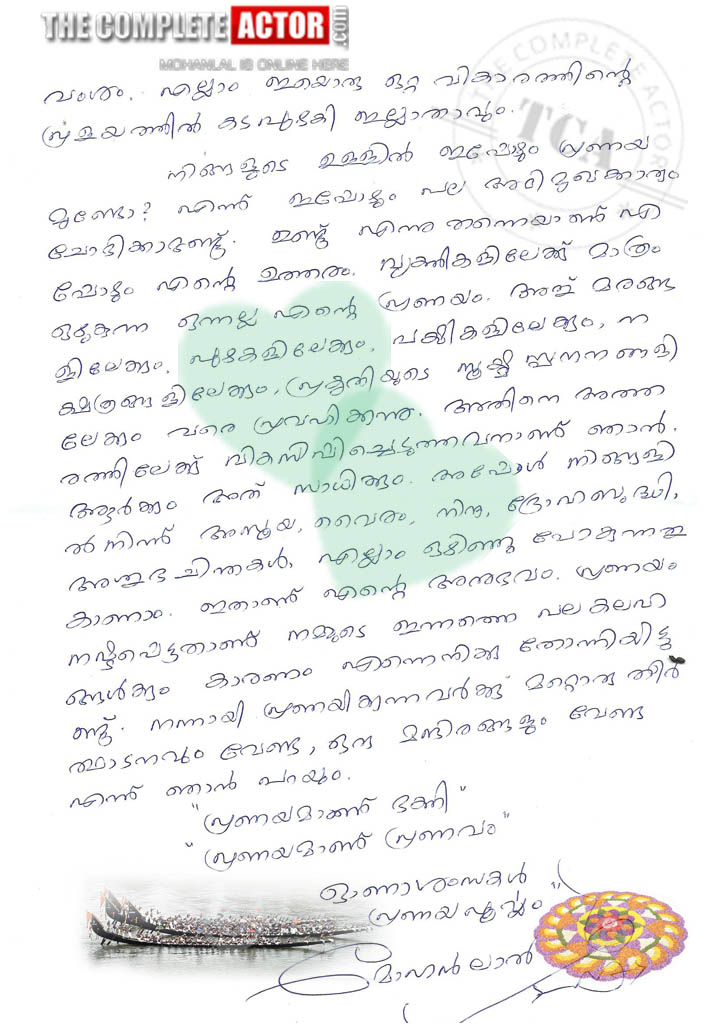 THE COMPLETE ACTOR.com
MOHANLAL IS ONLINE HERE
THE COMPLETE ACTOR
TCA
വംശം, എല്ലാം ഇയൊരു ഒറ്റ വികാരത്തിന്റെ
പ്രളയത്തിൽ കടപുഴകി ഇല്ലാതാവും.
നിങ്ങളുടെ ഉള്ളിൽ ഇപ്പോഴും പ്രണയ
മുണ്ടോ? എന്ന് ഇപ്പോഴും പല അഭിമുഖക്കാരും
ചോദിക്കാറുണ്ട്. ഉണ്ട് എന്നു തന്നെയാണ് എ
പ്പോഴും എന്റെ ഉത്തരം. വ്യക്തികളിലേക്ക് മാത്രം
ഒഴുകുന്ന ഒന്നല്ല എന്റെ പ്രണയം. അത് മരങ്ങ
ളിലേക്കും, പുഴകളിലേക്കും, പക്ഷികളിലേക്കും, ന
ക്ഷത്രങ്ങളിലേക്കും, പ്രകൃതിയുടെ സൂക്ഷ്മ സ്പന്ദനങ്ങളി
ലേക്കും വരെ പ്രവഹിക്കുന്നു. അതിനെ അത്ത
രത്തിലേക്ക് വികസിപ്പിച്ചെടുത്തവനാണ് ഞാൻ.
ആർക്കും അത് സാധിക്കും. അപ്പോൾ നിങ്ങളി
ൽ നിന്ന് അസൂയ, വൈരം, നിന്ദ, ദ്രോഹബുദ്ധി,
അശുഭ ചിന്തകൾ, എല്ലാം ഒഴിഞ്ഞു പോകുന്നത്
കാണാം. ഇതാണ് എന്റെ അനുഭവം. പ്രണയം
നഷ്ടപ്പെട്ടതാണ് നമ്മുടെ ഇന്നത്തെ പല കലഹ
ങ്ങൾക്കും കാരണം എന്നെനിക്കു തോന്നിയിട്ടു
ണ്ട്. നന്നായി പ്രണയിക്കുന്നവർക്ക് മറ്റൊരു തീർ
ത്ഥാടനവും വേണ്ട, ഒരു മന്ദിരങ്ങളും വേണ്ട
എന്ന് ഞാൻ പറയും.
"പ്രണയമാണ് ഭക്തി"
"പ്രണയമാണ് പ്രണവം"
ഓണാശംസകൾ
പ്രണയപൂർവ്വം
മോഹൻലാൽ